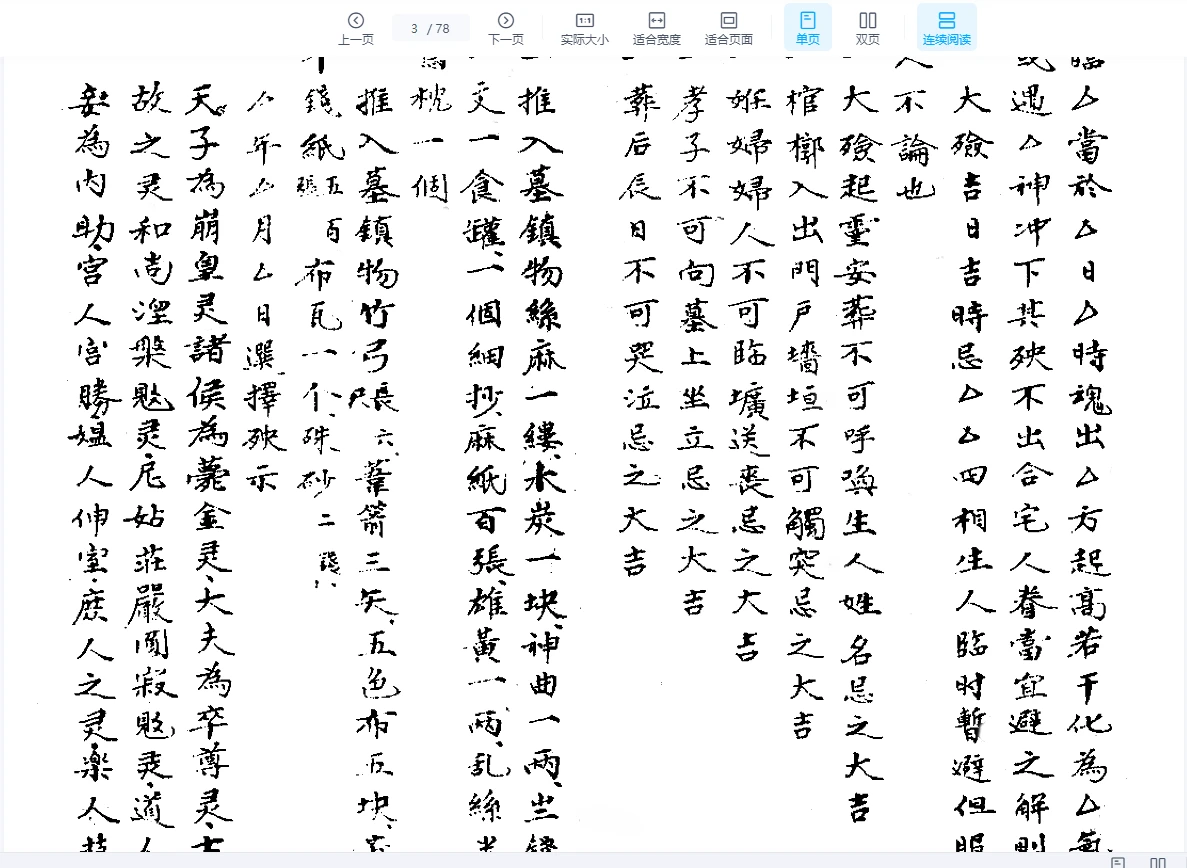 上一页
3 / 78
下一页
实际大小
适合宽度
适合页面
单页
双页
连续阅读
臨厶當於厶日厶時魂出厶方起高若干化為厶氣
或遇厶神冲下其殃不出合宅人眷當宜避之解則
大殮吉日吉時忌厶厶四相生人臨时暫避但眼
人不論也
大殮起靈安葬不可呼喚生人姓名忌之大吉
棺槨入出門戶墻垣不可觸突忌之大吉
婦婦人不可臨壙送喪忌之大吉
孝子不可向墓上坐立忌之大吉
葬后辰日不可哭泣忌之大吉
推入墓鎮物絲麻一縷、木炭一块、神曲一兩、
文一食罐、一個細抄、麻紙百張、雄黃一兩、乱絲
為枕一個
推入墓鎮物竹弓長尺六、葦箭三矢、五色布五块、
千錢、紙五百張布瓦一个、珠砂二錢、
厶年厶月厶日選擇殃示
天子為崩皇灵諸侯為薨金灵、大夫為卒尊灵、士
故之灵和尚涅槃灵、尼姑莊嚴圓寂灵、道人
妾為内助、宫人宫勝、媪人伸室、庶人之灵、楽人技